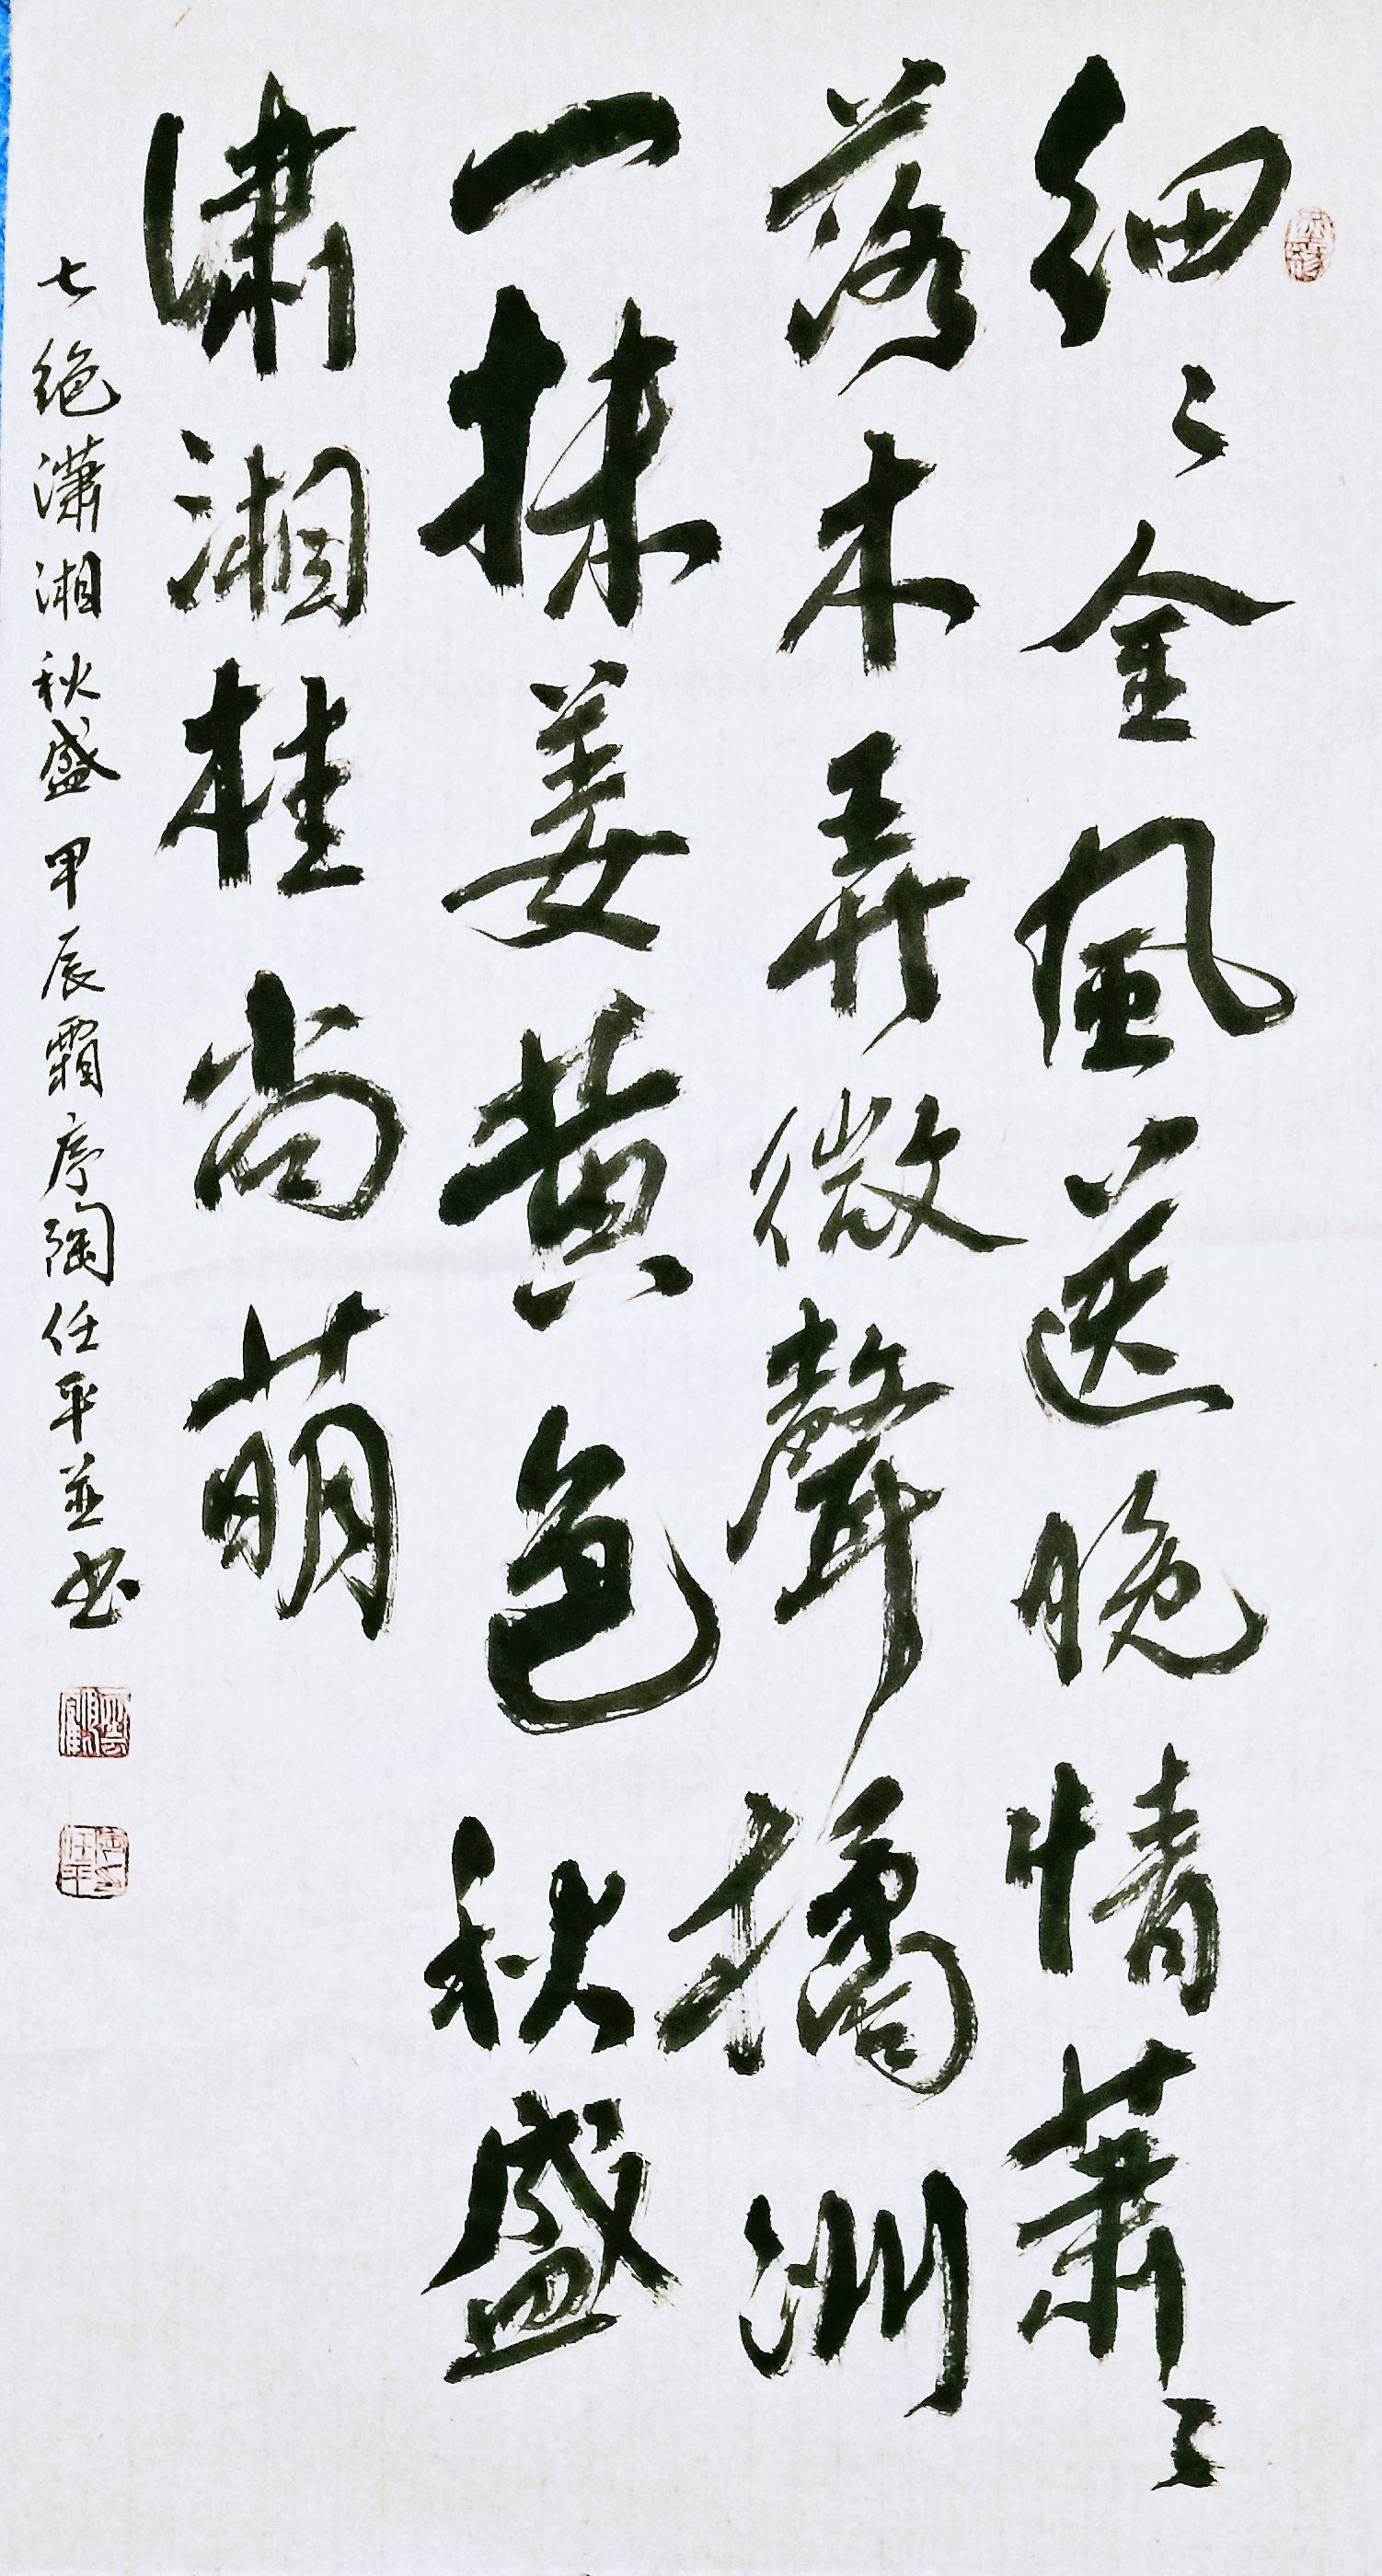 细々金風送晚情蕭々
落木弄微聲橘洲
一抹姜黄色秋盛
潇湘桂尚萌
七绝潇湘秋盛甲辰霜序陶任平並书